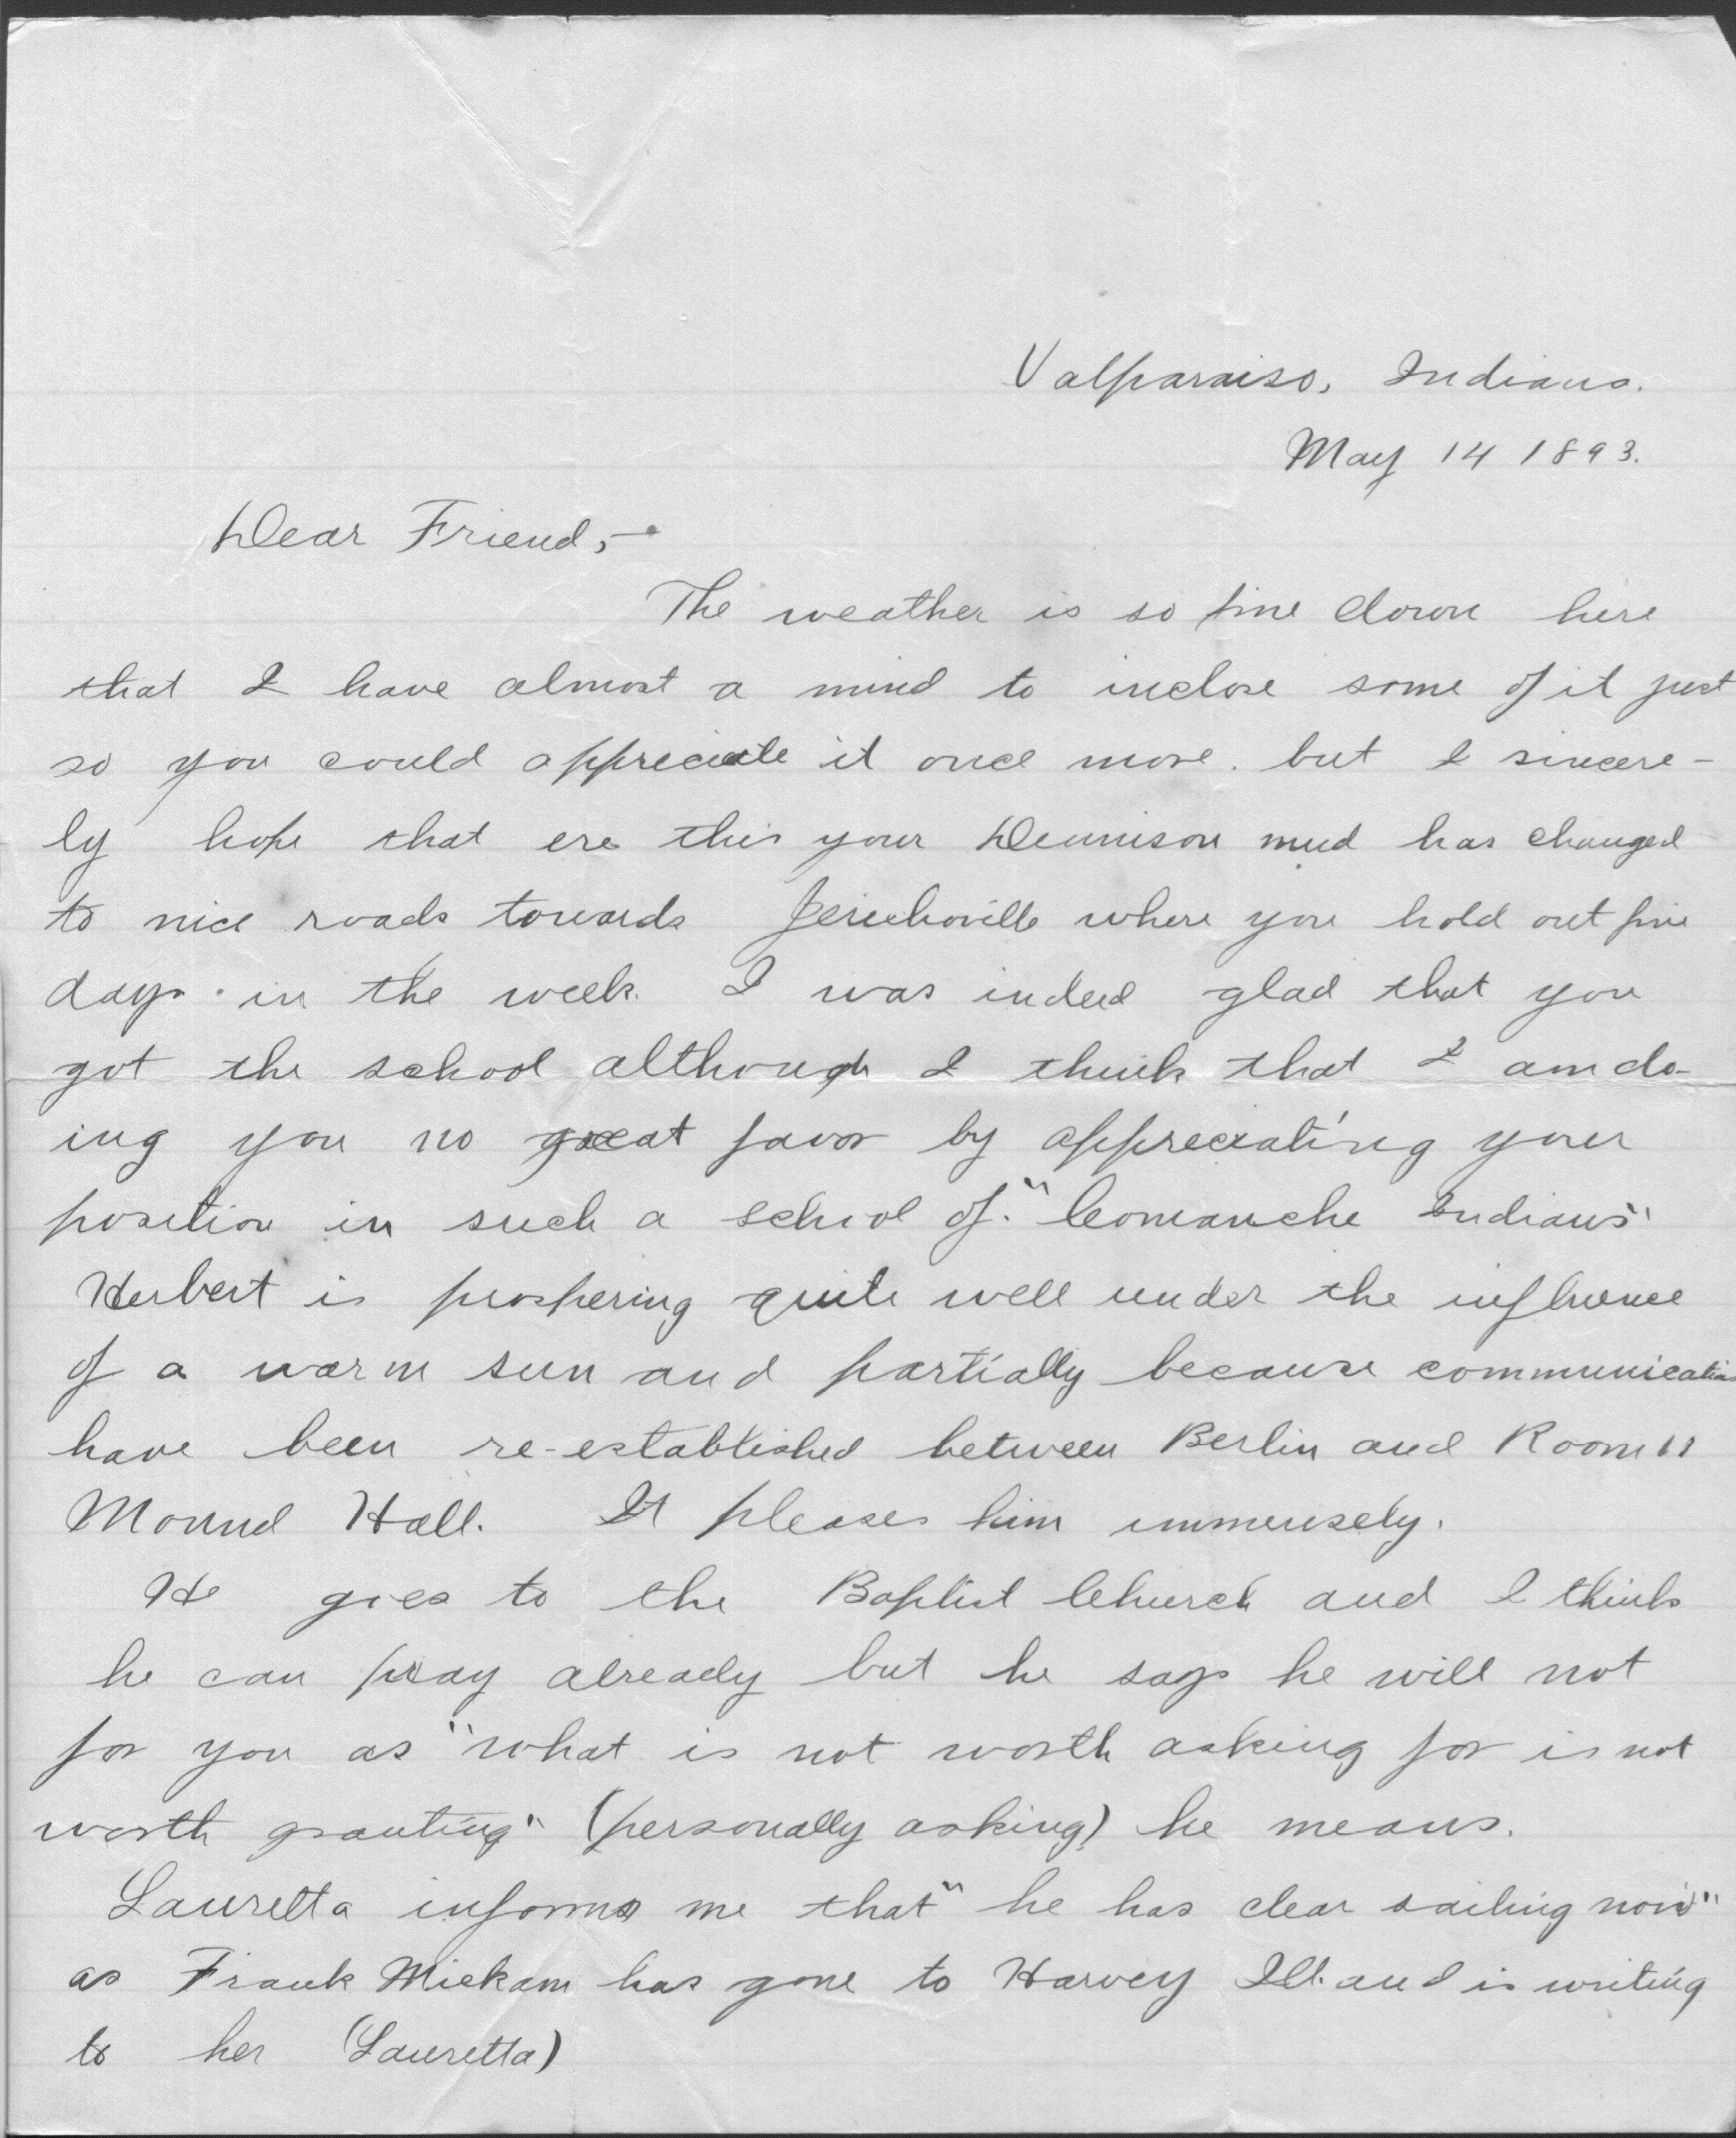 Valparaiso, Indiana.
May 14 1893.
Dear Friend,-
The weather is so fine down here
that I have almost a mind to inclose some of it just
so you could appreciate it once more. but I sincere-
ly hope that ere this your Dennison mud has changed
to nice roads towards Jerichoville where you hold out five
days in the week. I was indeed glad that you
got the school although I think that I am do-
ing you no great favor by appreciating your
position in such a school of "Comanche Indians"
Herbert is prospering quite well under the influence
of a warm sun and partially because communications
have been re-established between Berlin and Room 11
Mound Hall. It pleases him immensely.
He goes to the Baptist Church and I think
he can pray already but he says he will not
for you as "what is not worth asking for is not
worth granting" (personally asking) he means.
Lauretta informs me that "he has clear sailing now"
as Frank has gone to Harvey Ill. and is writing
to her (Lauretta)